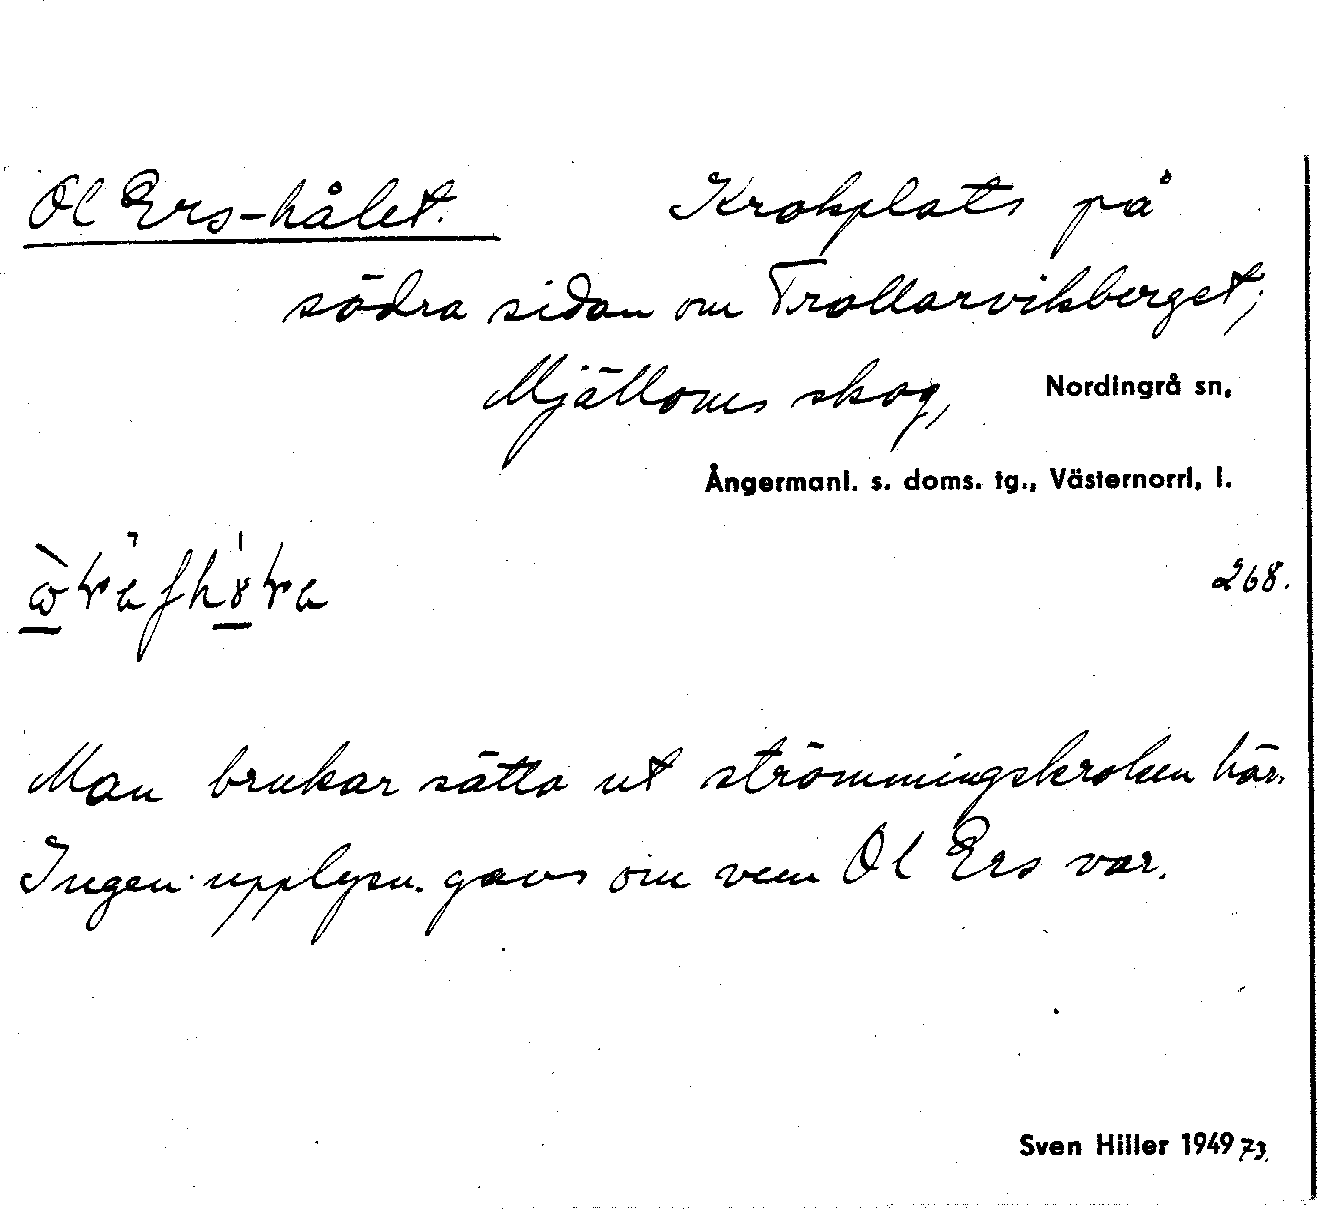 Ol Ers-hålet. Krokplats på
södra sidan om Trollarvikberget;
Mjälloms skog, Nordingrå sn,
Ångermanl. s. doms. tg., Västernorrl, l.
268.
Man brukar sätta ut strömmingskroken här.
Ingen upplysn. gavs om vem Ol Ers var.
Sven Hiller 1949 73.